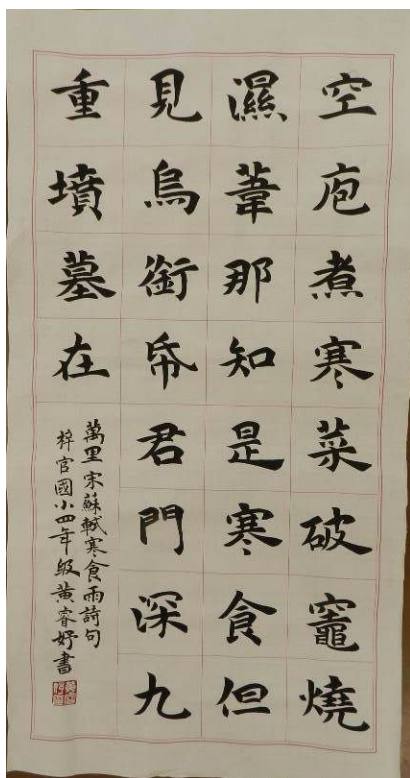 空庖煮寒菜破竈燒
濕葦那知是寒食但
見烏銜帋君門深九
重墳墓在
萬里宋蘇軾寒食雨詩句
梓官國小四年級黃睿妤書